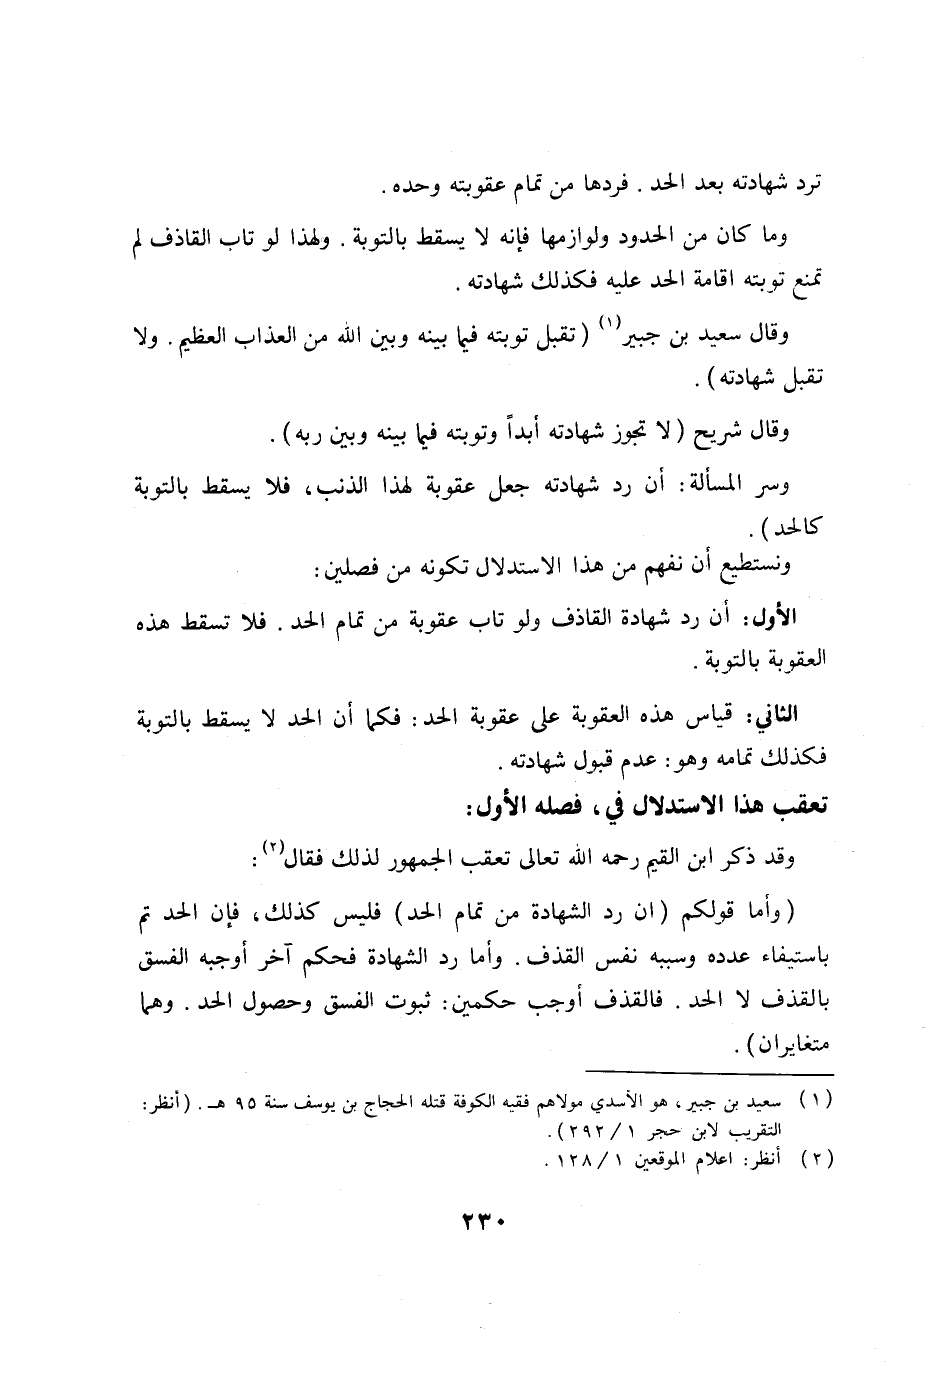 ترد شهادته بعد الحد . فردها من تمام عقوبته وحده .
وما كان من الحدود ولوازمها فإنه لا يسقط بالتوبة . ولهذا لو تاب القاذف لم
تمنع توبته اقامة الحد عليه فكذلك شهادته .
وقال سعيد بن جبير(١) ( تقبل توبته فيما بينه وبين الله من العذاب العظيم . ولا
تقبل شهادته ) .
وقال شريح ( لا تجوز شهادته أبداً وتوبته فيما بينه وبين ربه ) .
وسر المسألة : أن رد شهادته جعل عقوبة لهذا الذنب ، فلا يسقط بالتوبة
كالحد ) .
ونستطيع أن نفهم من هذا الاستدلال تكونه من فصلين :
الأول : أن رد شهادة القاذف ولو تاب عقوبة من تمام الحد . فلا تسقط هذه
العقوبة بالتوبة .
الثاني : قياس هذه العقوبة على عقوبة الحد : فكما أن الحد لا يسقط بالتوبة
فكذلك تمامه وهو : عدم قبول شهادته .
تعقب هذا الاستدلال في ، فصله الأول :
وقد ذكر ابن القيم رحمه الله تعالى تعقب الجمهور لذلك فقال(٢) :
( وأما قولكم ( ان رد الشهادة من تمام الحد ) فليس كذلك ، فإن الحد تم
باستيفاء عدده وسببه نفس القذف . وأما رد الشهادة فحكم آخر أوجبه الفسق
بالقذف لا الحد . فالقذف أوجب حكمين : ثبوت الفسق وحصول الحد . وهما
متغايران ) .
( ١ ) سعيد بن جبير ، هو الأسدي مولاهم فقيه الكوفة قتله الحجاج بن يوسف سنة ٩٥ هـ . ( أنظر :
التقريب لابن حجر ١ / ٢٩٢ ) .
( ٢ ) أنظر : اعلام الموقعين ١ / ١٢٨ .
٢٣٠